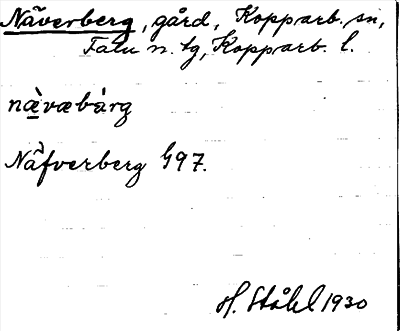 Näverberg, gård, Kopparb. sn,
Falu n. tg, Kopparb. l.
næ̀væbàrg
Näfverberg G97.
H. Ståhl 1930